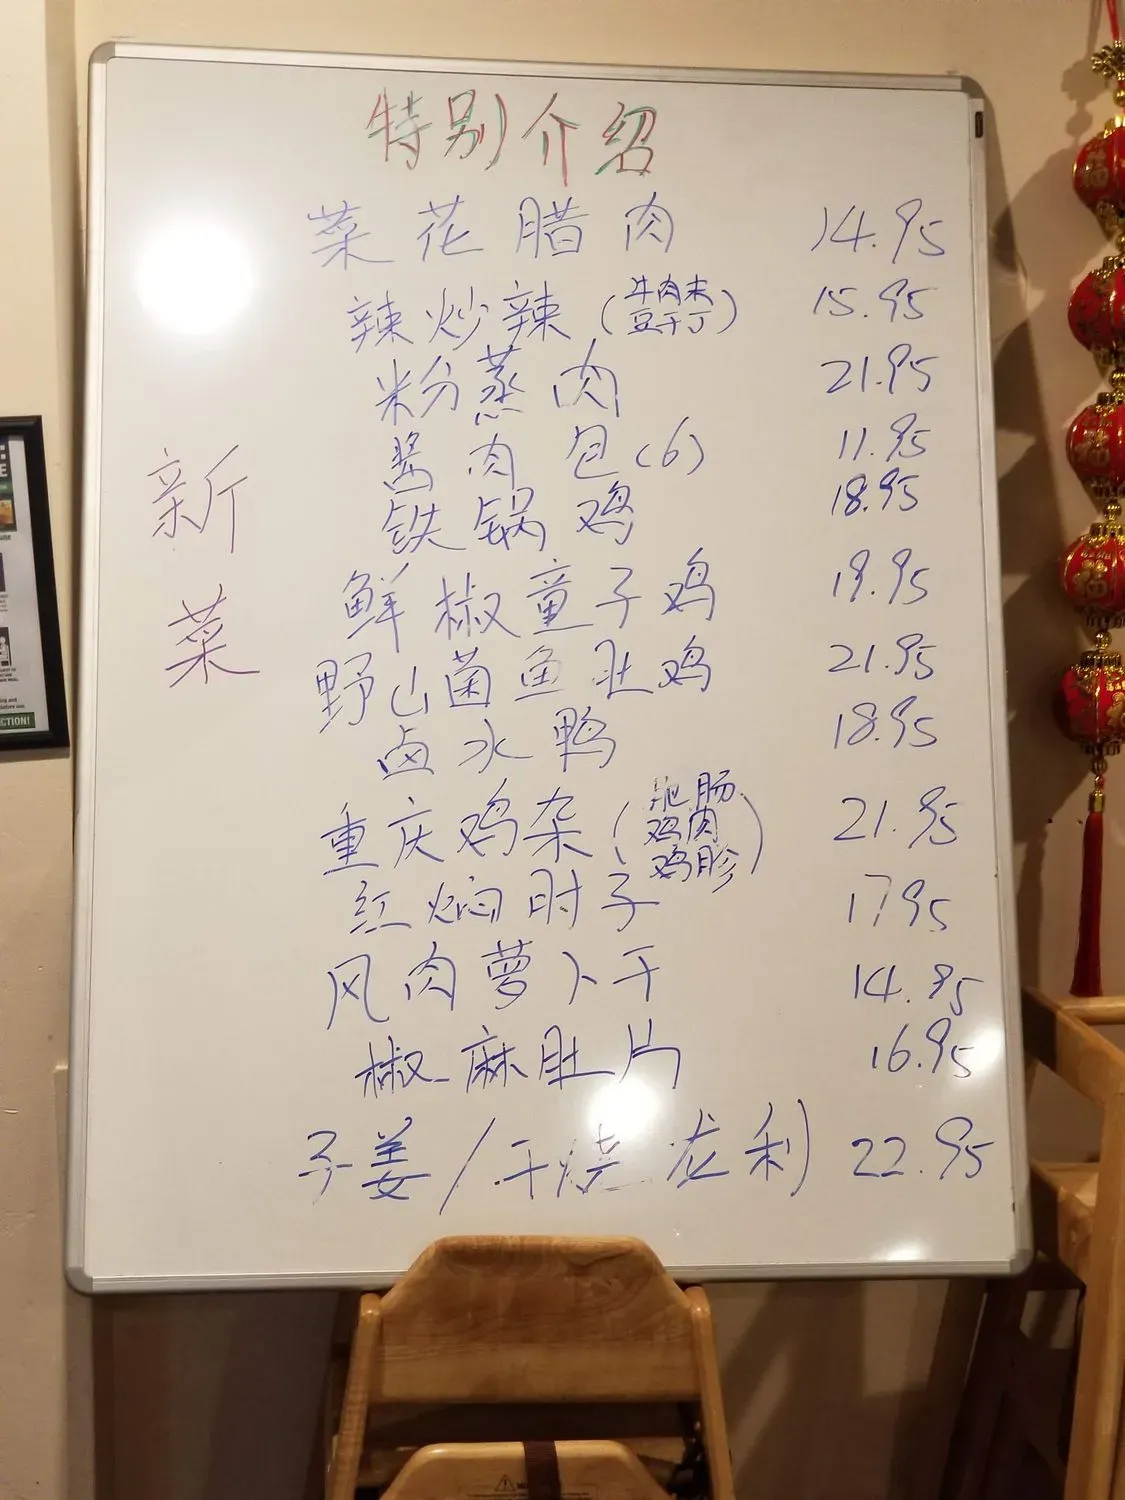 特别介绍
菜花腊肉 14.95
辣炒辣(牛肉末豆干丁) 15.95
粉蒸肉 21.95
酱肉包(6) 11.95
铁锅鸡 18.95
鲜椒童子鸡 19.95
野山菌鱼肚鸡 21.95
卤水鸭 18.95
重庆鸡杂(肥肠鸡肉鸡胗) 21.95
红焖肘子 17.95
风肉萝卜干 14.95
椒麻肚片 16.95
子姜/干烧龙利 22.95
新菜
CTION!